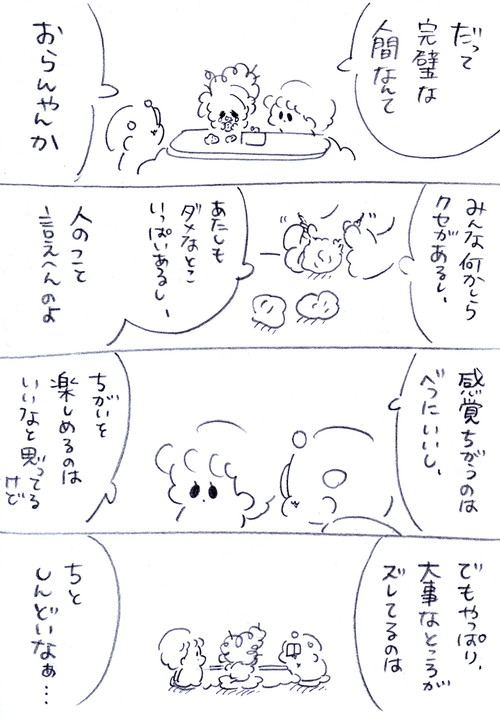 だって
完璧な
人間なんて
おらんやんか
みんな何かしら
クセがあるし、
あたしも
ダメなとこ
いっぱいあるし、
人のこと
言えへんのよ
感覚ちがうのは
べつにいいし、
ちがいを
楽しめるのは
いいなと思ってる
けど
でもやっぱり、
大事なところが
ズレてるのは
ちと
しんどいなぁ…